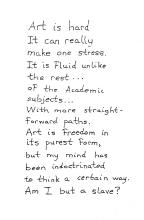 Art is hard
It can really
make one stress.
It is Fluid unlike
the rest...
of the Academic
subjects...
With more straight-
forward paths.
Art is freedom in
its purest form,
but my mind has
been indoctrinated
to think a certain way.
Am I but a slave?